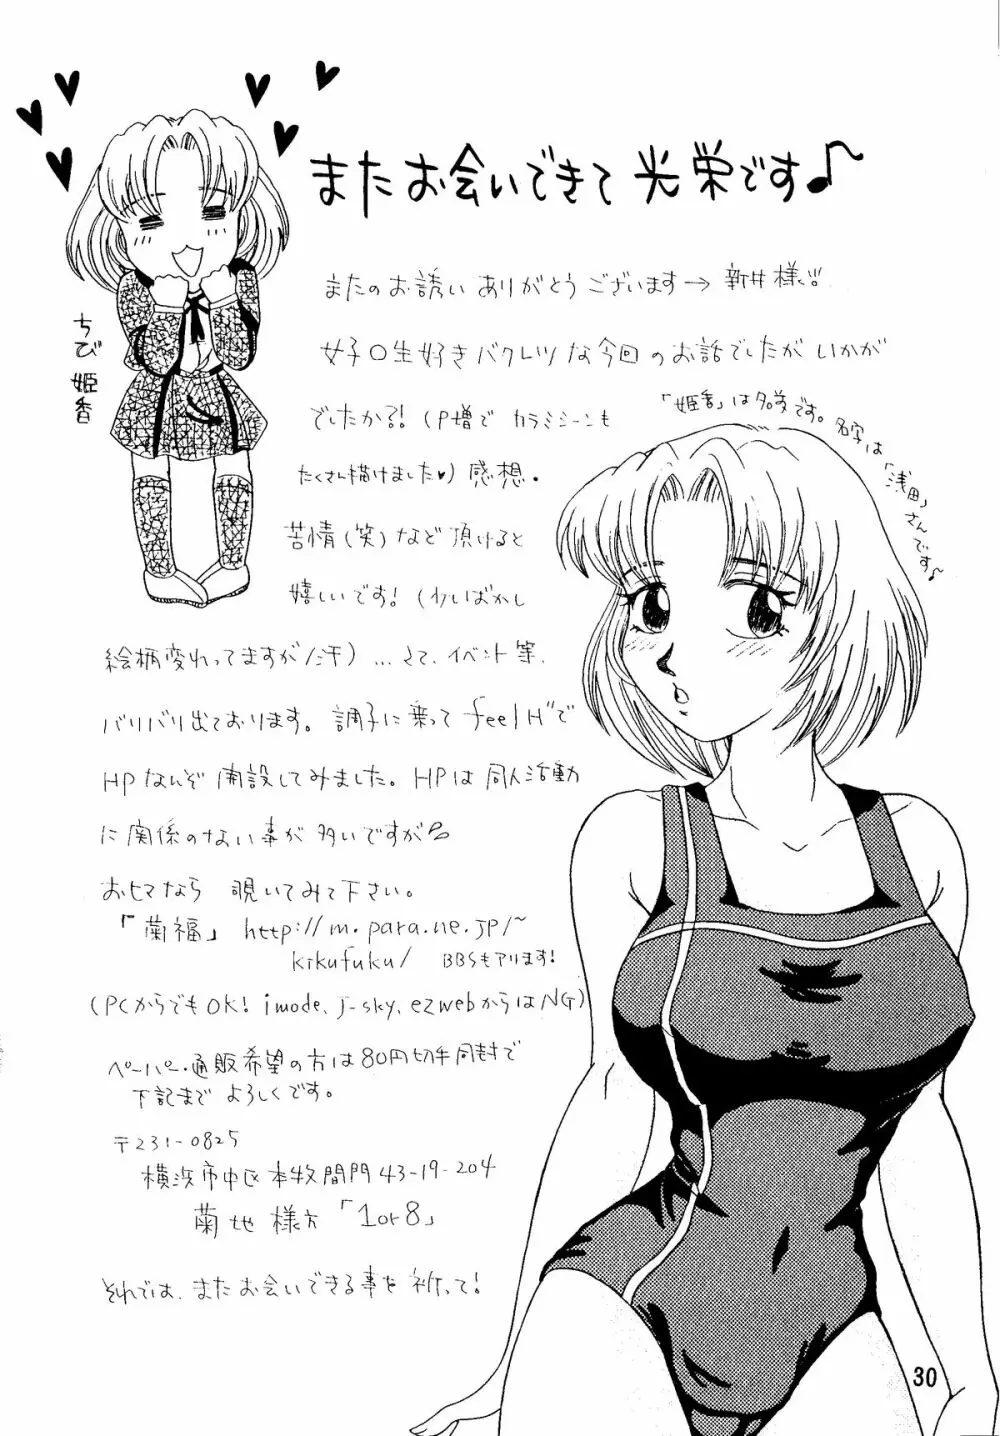 またお会いできて光栄です♪
またのお誘いありがとうございます→新井様!!
女子〇生好きバクレツな今回のお話でしたがいかが
でしたかろ! (P増でカラミシーンも
たくさん描けました♥) 感想・
苦情(笑)など頂けると
嬉しいです! (
絵柄変わってますが/汗) …さて、イベント等、
バリバリ出ております。調子に乗ってfeelH"で
HPなんぞ開設してみました。HPは同人活動
に関係のない事が多いですが
おヒマなら 覗いてみて下さい。
「蘭福」 http://m.para.ne.jp/~
kikufuku/ BBSもアリます!
(PCからでもOK! imode、j-sky、ezwebからはNG)
ペーパー・通販希望の方は80円切手同封で
下記まで よろしくです。
〒231-0825
横浜市中区本牧間門43-19-204
菊地様方「1or8」
それでは、またお会いできる事を祈って!
ちび姫香
「姫香」は名前です。名字は「浅田」さんです♪
30